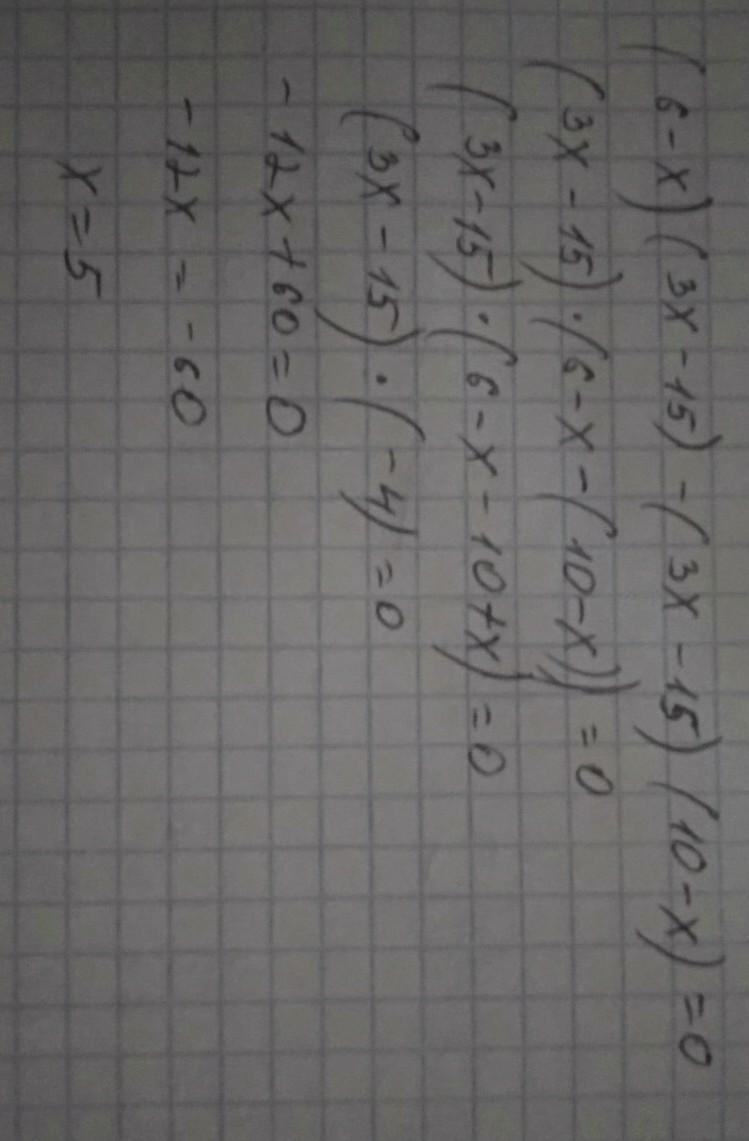 (6-x)(3x-15)-(3x-15)(10-x)=0
(3x-15)·(6-x-(10-x))=0
(3x-15)·(6-x-10+x)=0
(3x-15)·(-4)=0
-12x+60=0
-12x=-60
x=5